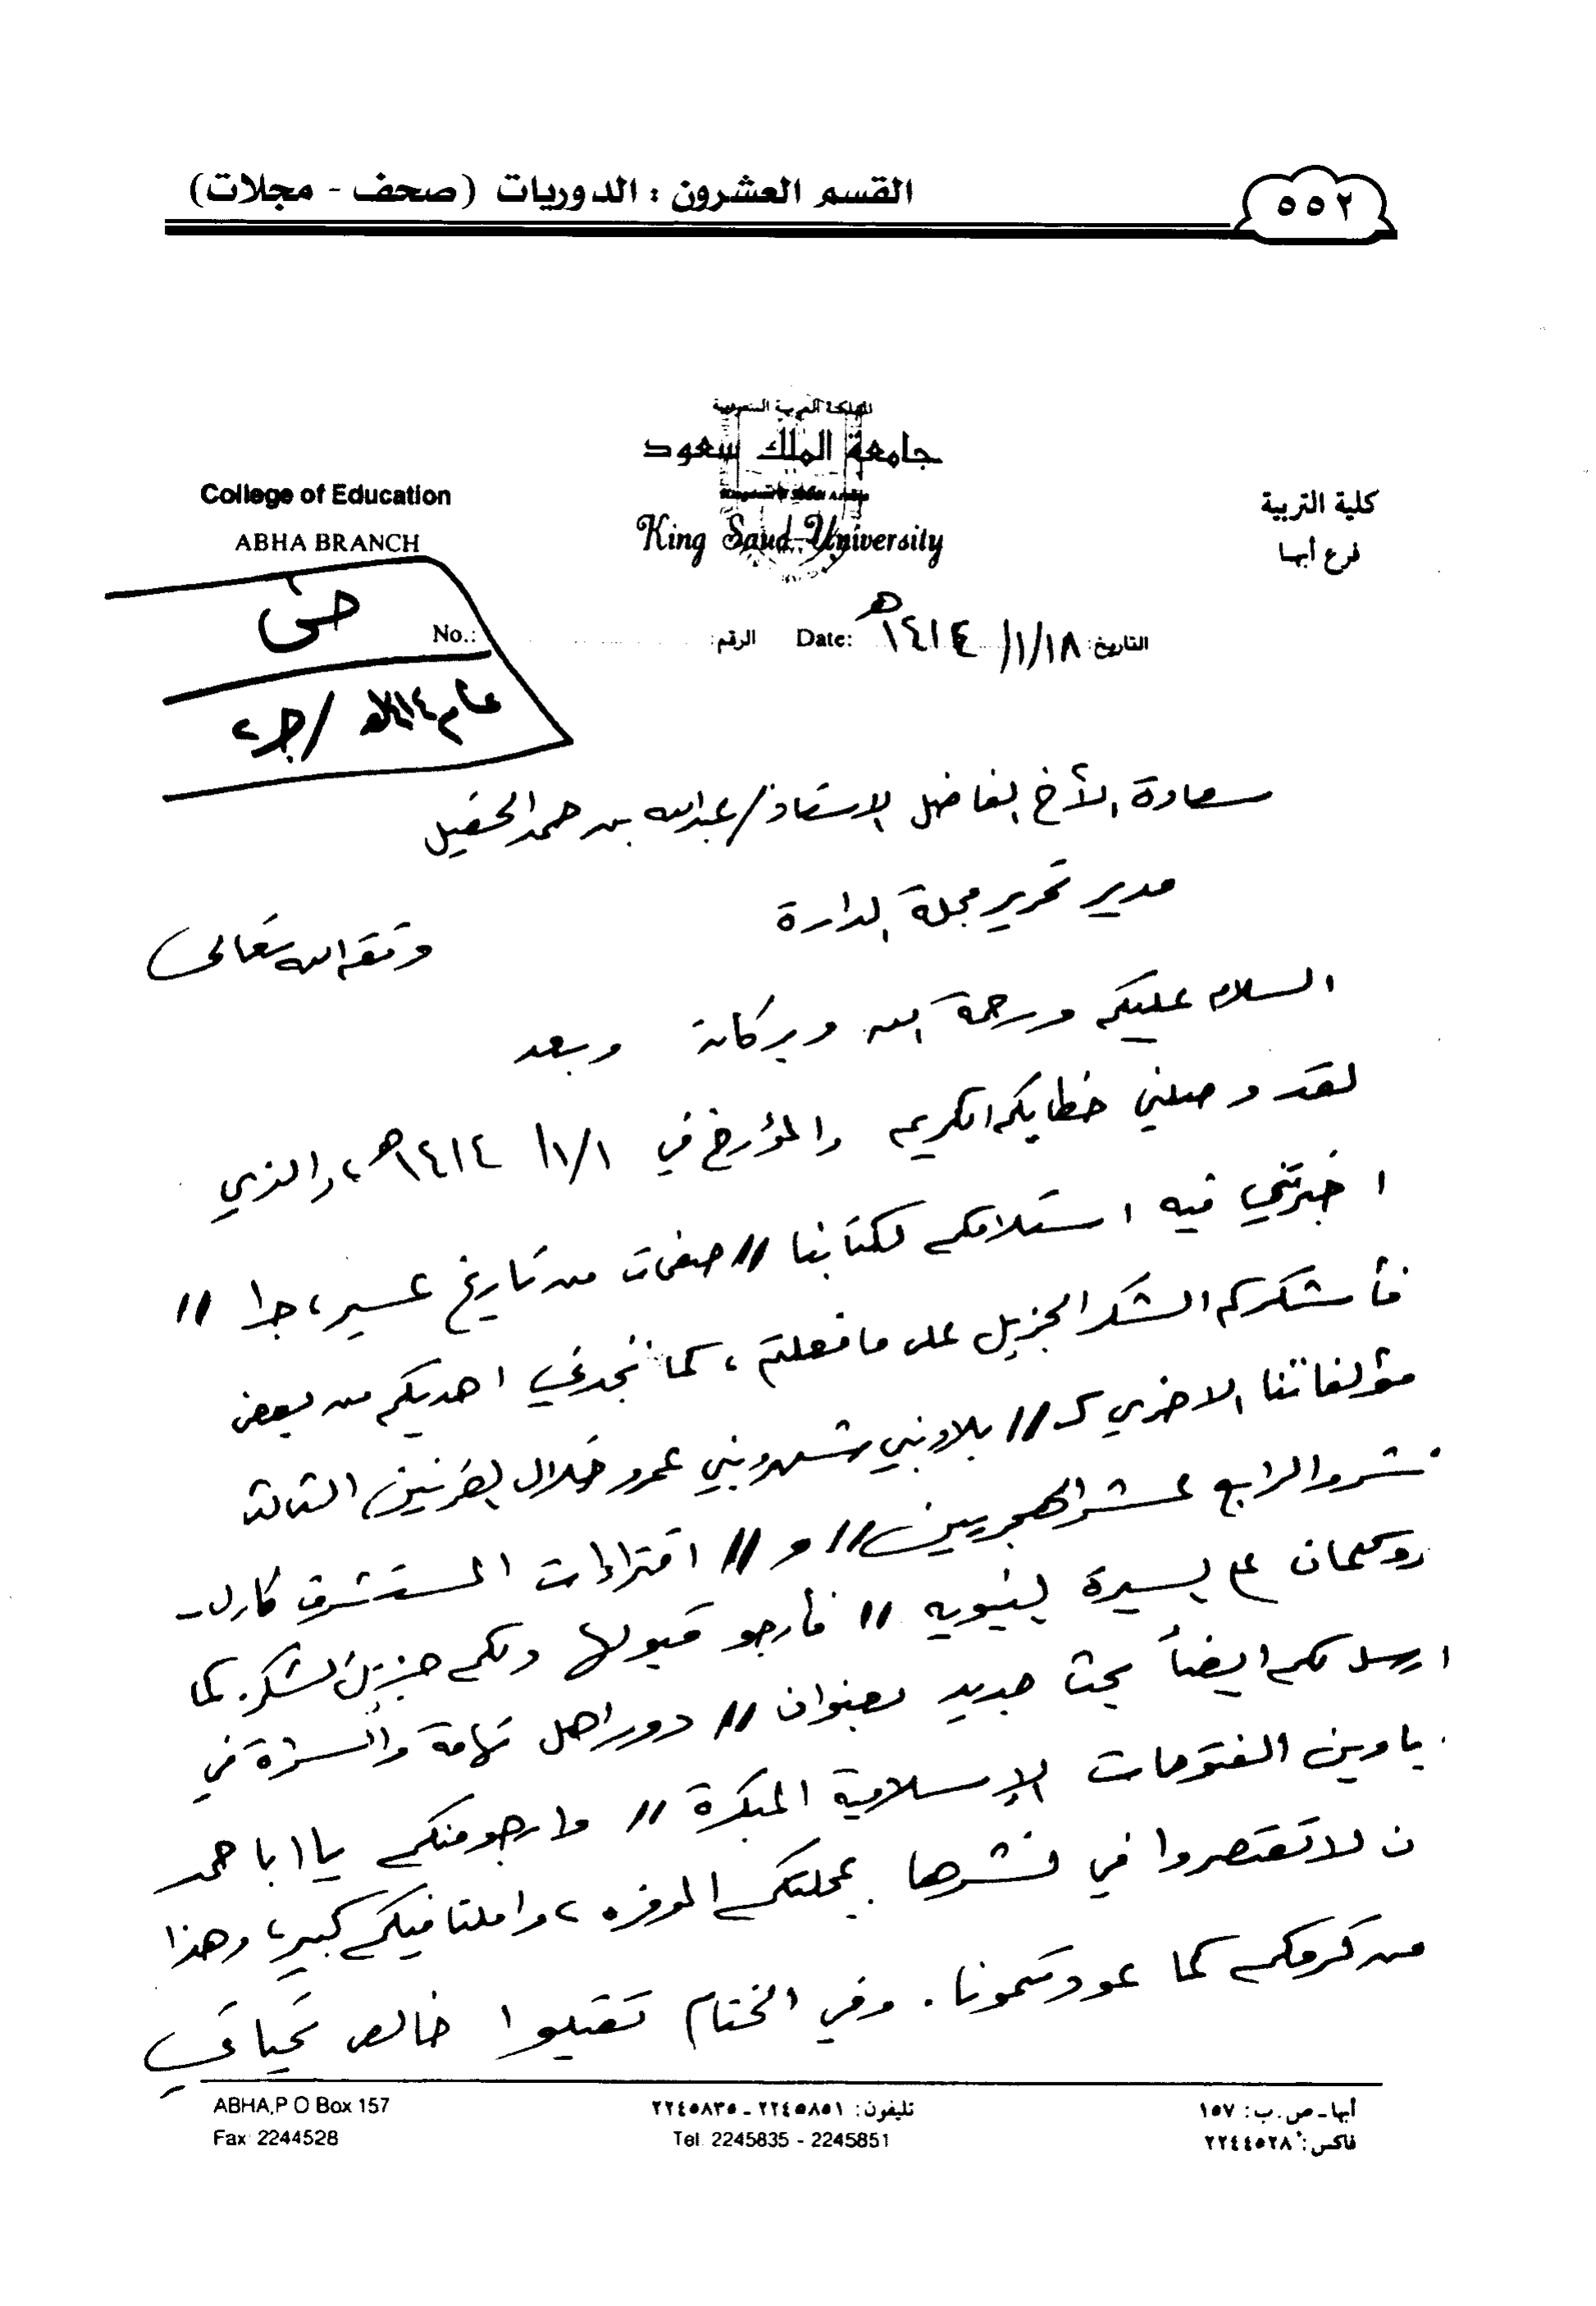 ٥٥٢
القسم العشرون : الدوريات (صحف - مجلات)
المملكة العربية السعودية
جامعة الملك سعود
King Saud University
كلية التربية
فرع أبها
College of Education
ABHA BRANCH
التاريخ: ١٤١٤/١/١٨هـ Date: الرقم: No.:
عام ١٤١٤هـ / جـ٢
سعادة الأخ الفاضل الاستاذ/ عبدالله بن حمد الحقيل
مدير تحرير مجلة الدارة
وفقه الله تعالى
السلام عليكم ورحمة الله وبركاته وبعد
لقد وصلني خطابكم الكريم والمؤرخ في ١/١/ ١٤١٤هـ، والذي
اخبرتني فيه استلامكم لكتابنا // صفحات من تاريخ عسير، جـ١ //
فأشكركم الشكر الجزيل على ما فعلتم، كما تجدني اهديكم من بعض
مؤلفاتنا الاخرى كـ // بلاد بني شهر وبني عمرو خلال القرنين الثالث
عشر والرابع عشر الهجريين // و // افتراءات المستشرق كارل ـ
روكلمان على السيرة النبويه // فأرجو قبولها ولكم جزيل الشكر. كما
ارسل لكم ايضاً بحث جديد بعنوان // دور اهل تهامة والسراة في
يادين الفتوحات الإسلامية المبكرة // وارجو منكم يا ابا حمد
ن لا تقتصروا في نشرها بمجلتكم الموقره، واملنا فيكم كبير، وهذا
من كرمكم كما عودتمونا. وفي الختام تقبلوا خالص تحياتي
أبها ـ ص. ب: ١٥٧
فاكس: ٢٢٤٤٥٢٨
تليفون: ٢٢٤٥٨٥١ ـ ٢٢٤٥٨٣٥
Tel. 2245835 - 2245851
ABHA,P O Box 157
Fax 2244528